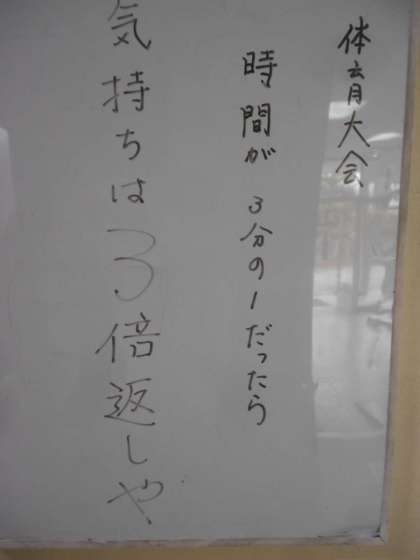 体育大会
時間が 3分の1だったら
気持ちは3倍返しや、